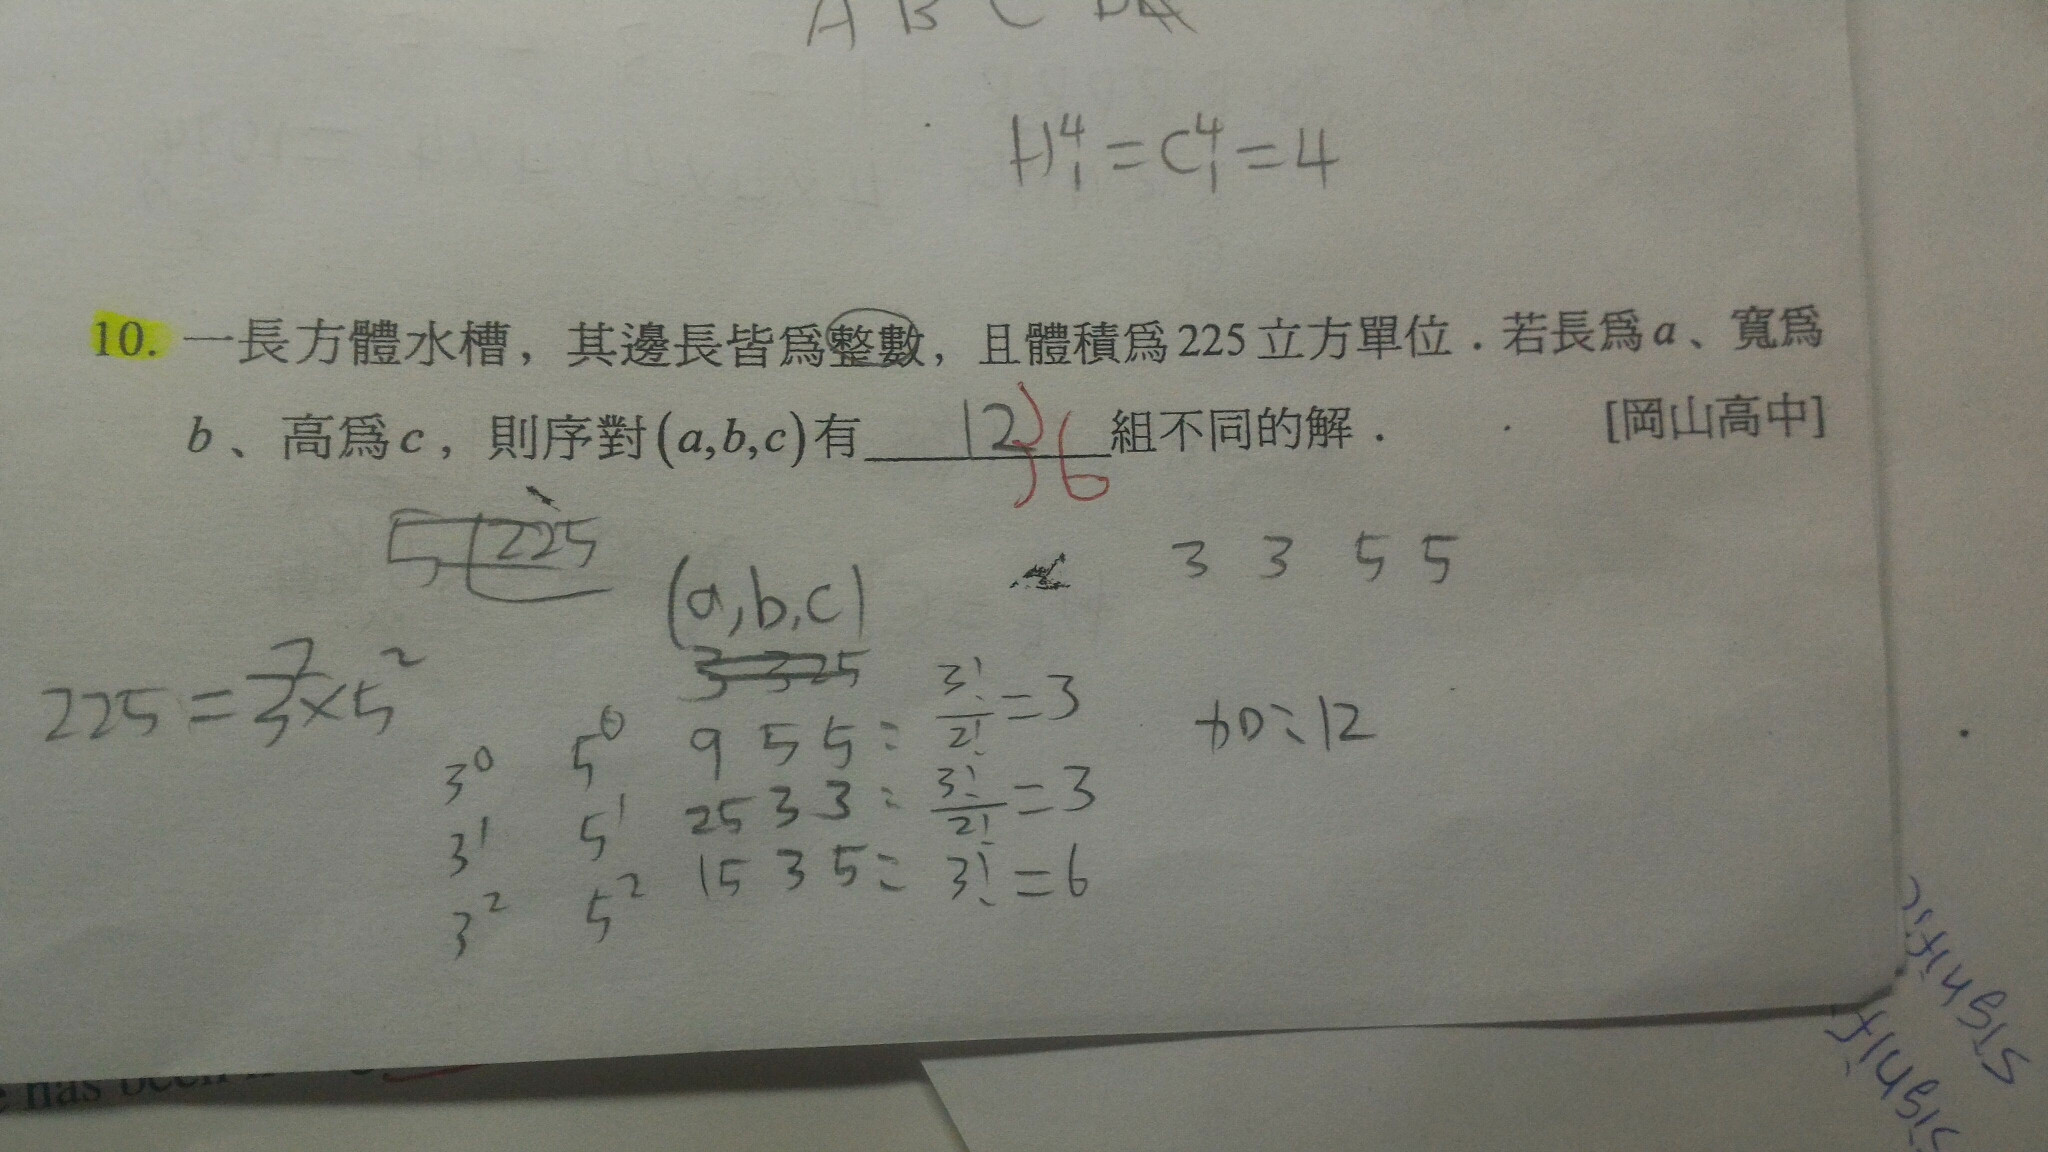 A B C
H⁴₁ = C⁴₁ = 4
10. 一長方體水槽，其邊長皆爲整數，且體積爲225立方單位．若長爲a、寬爲
b、高爲c，則序對(a,b,c)有 12 36 組不同的解． [岡山高中]
5 225
3 3 5 5
(a,b,c)
3 3 25
225 = 3²×5²
3⁰ 5⁰ 9 5 5 = 3!/2! = 3
3¹ 5¹ 25 3 3 = 3!/2! = 3
3² 5² 15 3 5 = 3! = 6
12
has been
signific
signif